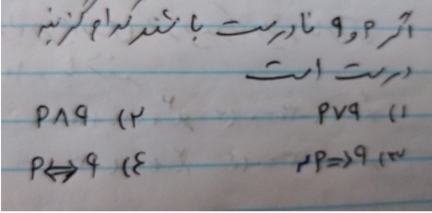 اگر p و q نادرست باشند کدام گزینه
درست است
۱) p∨q ۲) p∧q
۳) p=>q ۴) p⇔q